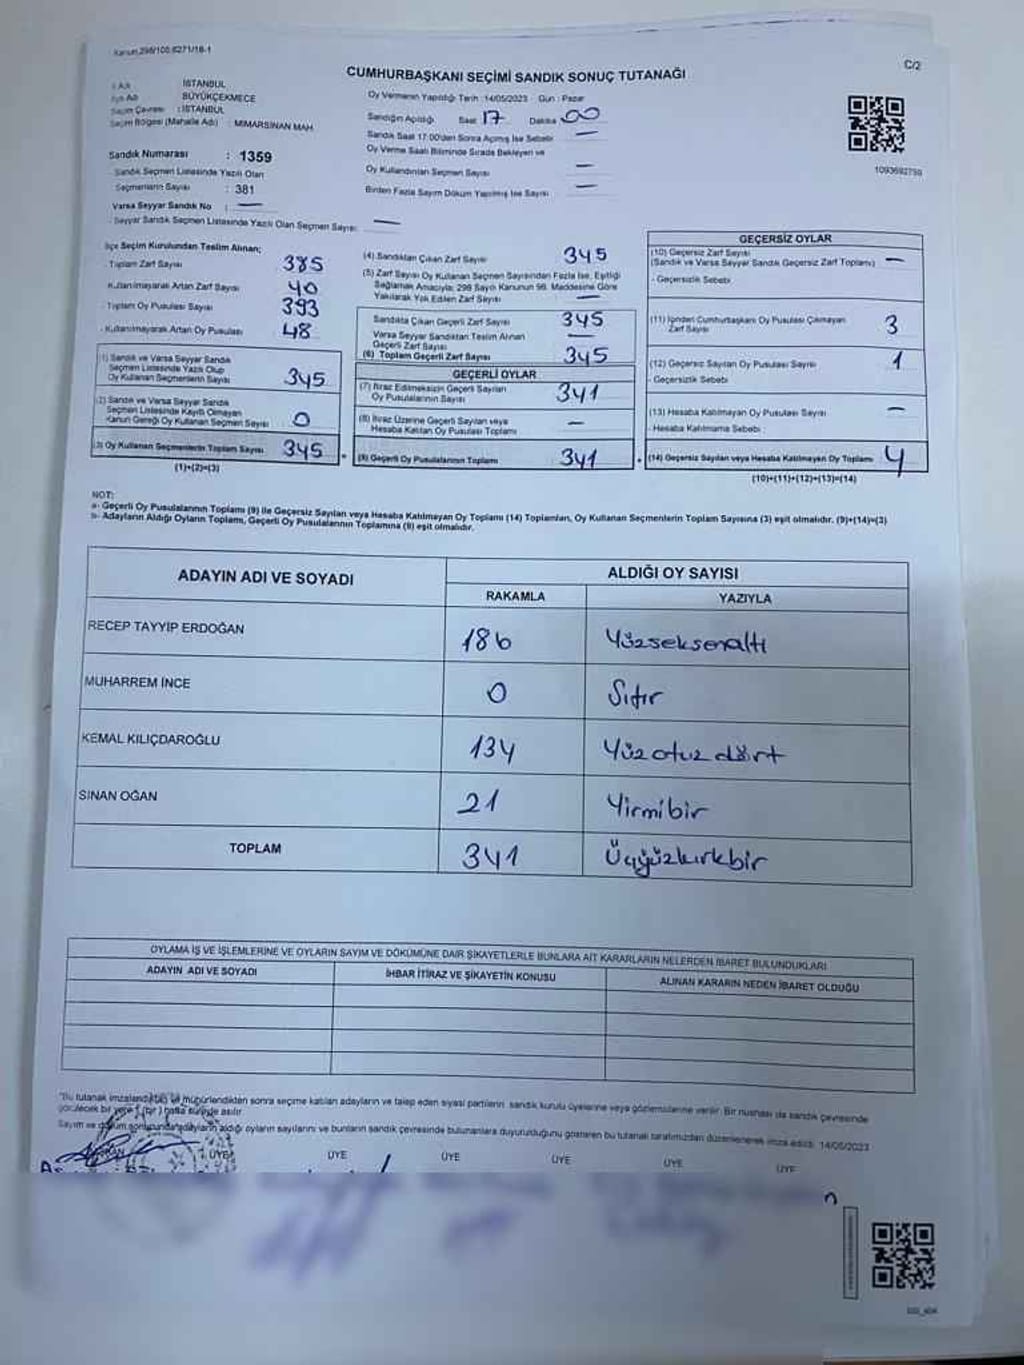 Kanun,298/105,6271/16-1
C/2
CUMHURBAŞKANI SEÇİMİ SANDIK SONUÇ TUTANAĞI
İl Adı : İSTANBUL
İlçe Adı : BÜYÜKÇEKMECE
Seçim Çevresi : İSTANBUL
Seçim Bölgesi (Mahalle Adı) : MİMARSİNAN MAH.
Oy Vermenin Yapıldığı Tarih :14/05/2023 Gün : Pazar
Sandığın Açıldığı Saat 17 Dakika 00
Sandık Saat 17:00'den Sonra Açılmış İse Sebebi —
Oy Verme Saati Bitiminde Sırada Bekleyen ve
Oy Kullandırılan Seçmen Sayısı —
Birden Fazla Sayım Döküm Yapılmış İse Sayısı —
1093692759
Sandık Numarası : 1359
Sandık Seçmen Listesinde Yazılı Olan
Seçmenlerin Sayısı : 381
Varsa Seyyar Sandık No : —
Seyyar Sandık Seçmen Listesinde Yazılı Olan Seçmen Sayısı: —
İlçe Seçim Kurulundan Teslim Alınan;
- Toplam Zarf Sayısı 385
- Kullanılmayarak Artan Zarf Sayısı 40
- Toplam Oy Pusulası Sayısı 393
- Kullanılmayarak Artan Oy Pusulası 48
(1) Sandık ve Varsa Seyyar Sandık
Seçmen Listesinde Yazılı Olup
Oy Kullanan Seçmenlerin Sayısı 345
(2) Sandık ve Varsa Seyyar Sandık
Seçmen Listesinde Kayıtlı Olmayan
Kanun Gereği Oy Kullanan Seçmen Sayısı 0
(3) Oy Kullanan Seçmenlerin Toplam Sayısı 345
(1)+(2)=(3)
(4) Sandıktan Çıkan Zarf Sayısı 345
(5) Zarf Sayısı Oy Kullanan Seçmen Sayısından Fazla İse, Eşitliği
Sağlamak Amacıyla; 298 Sayılı Kanunun 98. Maddesine Göre
Yakılarak Yok Edilen Zarf Sayısı —
Sandıkta Çıkan Geçerli Zarf Sayısı 345
Varsa Seyyar Sandıktan Teslim Alınan
Geçerli Zarf Sayısı —
(6) Toplam Geçerli Zarf Sayısı 345
GEÇERLİ OYLAR
(7) İtiraz Edilmeksizin Geçerli Sayılan
Oy Pusulalarının Sayısı 341
(8) İtiraz Üzerine Geçerli Sayılan veya
Hesaba Katılan Oy Pusulası Toplamı —
(9) Geçerli Oy Pusulalarının Toplamı 341
GEÇERSİZ OYLAR
(10) Geçersiz Zarf Sayısı
(Sandık ve Varsa Seyyar Sandık Geçersiz Zarf Toplamı) —
- Geçersizlik Sebebi
(11) İçinden Cumhurbaşkanı Oy Pusulası Çıkmayan
Zarf Sayısı 3
(12) Geçersiz Sayılan Oy Pusulası Sayısı 1
- Geçersizlik Sebebi
(13) Hesaba Katılmayan Oy Pusulası Sayısı —
- Hesaba Katılmama Sebebi :
(14) Geçersiz Sayılan veya Hesaba Katılmayan Oy Toplamı 4
(10)+(11)+(12)+(13)=(14)
NOT:
a- Geçerli Oy Pusulalarının Toplamı (9) ile Geçersiz Sayılan veya Hesaba Katılmayan Oy Toplamı (14) Toplamları, Oy Kullanan Seçmenlerin Toplam Sayısına (3) eşit olmalıdır. (9)+(14)=(3)
b- Adayların Aldığı Oyların Toplamı, Geçerli Oy Pusulalarının Toplamına (9) eşit olmalıdır.
ADAYIN ADI VE SOYADI
ALDIĞI OY SAYISI
RAKAMLA YAZIYLA
RECEP TAYYİP ERDOĞAN 186 Yüzseksenaltı
MUHARREM İNCE 0 Sıfır
KEMAL KILIÇDAROĞLU 134 Yüz otuz dört
SİNAN OĞAN 21 Yirmibir
TOPLAM 341 Üçyüzkırkbir
OYLAMA İŞ VE İŞLEMLERİNE VE OYLARIN SAYIM VE DÖKÜMÜNE DAİR ŞİKAYETLERLE BUNLARA AİT KARARLARIN NELERDEN İBARET BULUNDUKLARI
ADAYIN ADI VE SOYADI İHBAR İTİRAZ VE ŞİKAYETİN KONUSU ALINAN KARARIN NEDEN İBARET OLDUĞU
"Bu tutanak imzalandıktan ve mühürlendikten sonra seçime katılan adayların ve talep eden siyasi partilerin sandık kurulu üyelerine veya gözlemcilerine verilir. Bir nushası da sandık çevresinde
görülecek bir yere 1 (bir) hafta süreyle asılır.
Sayım ve döküm sonucunda adayların aldığı oyların sayılarını ve bunların sandık çevresinde bulunanlara duyurulduğunu gösteren bu tutanak tarafımızdan düzenlenerek imza edildi. 14/05/2023
ÜYE ÜYE ÜYE ÜYE ÜYE ÜYE